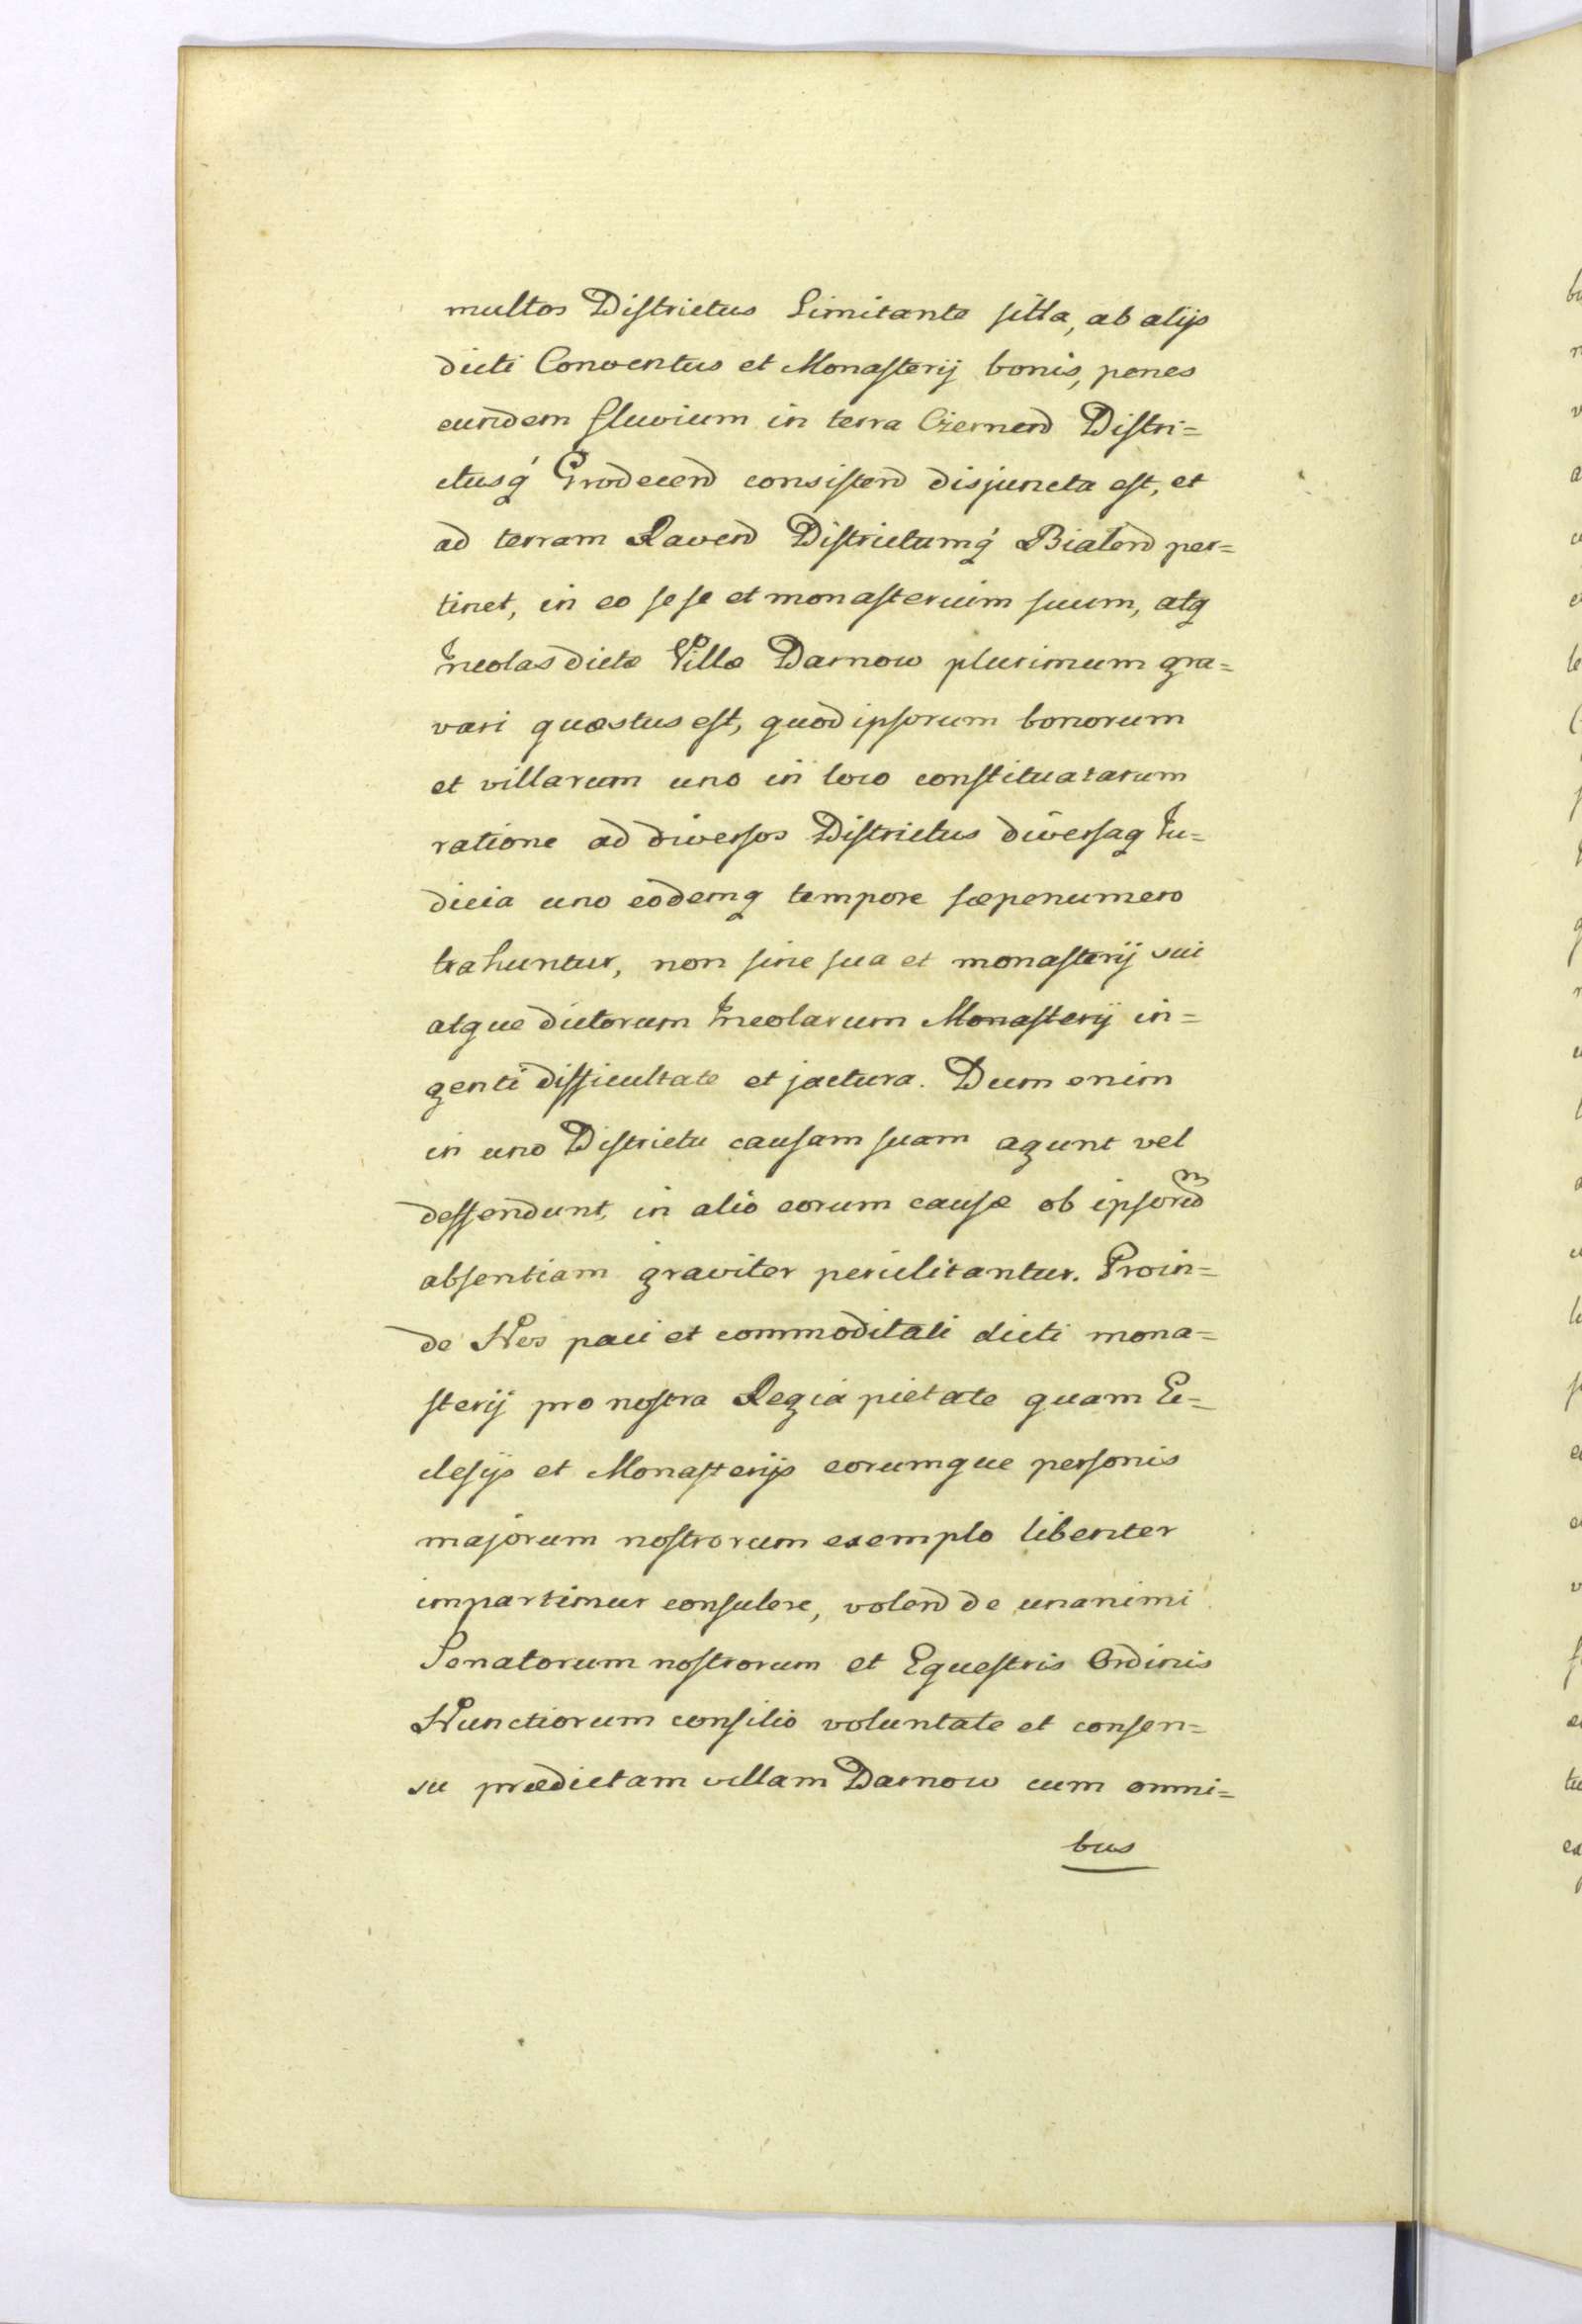 multos Districtus Limitante sitta, ab alijs
dicti Conventus et Monasterij bonis, penes
eundem fluvium in terra Czernen̄ Distri=
ctusq́ Grodecen̄ consisten̄ disjuncta est, et
ad terram Raven̄ Districtumq́ Bialen̄ per=
tinet, in eo se se et monasterium suum, atq
Incolas dictæ Villæ Darnow plurimum gra=
vari quæstus est, quod ipsorum bonorum
et villarum uno in loco constituatarum
ratione ad diversos Districtus diversaq Iu=
dicia uno eodemq tempore sæpenumero
trahuntur, non sine sua et monasterij sui
atque dictorum Incolarum Monasterij in=
genti difficultate et jactura. Dum enim
in uno Districtu causam suam agunt vel
deffendunt, in alio eorum causæ ob ipsorum
absentiam graviter periclitantur. Proin=
de Nos paci et commoditati dicti mona=
sterij pro nostra Regia pietate quam Ec=
clesijs et Monasterijs eorumque personis
majorum nostrorum exemplo libenter
impartimur consulere, volen̄ de unanimi
Senatorum nostrorum et Equestris Ordinis
Nunctiorum consilio voluntate et consen=
su prædictam villam Darnow cum omni=
bus